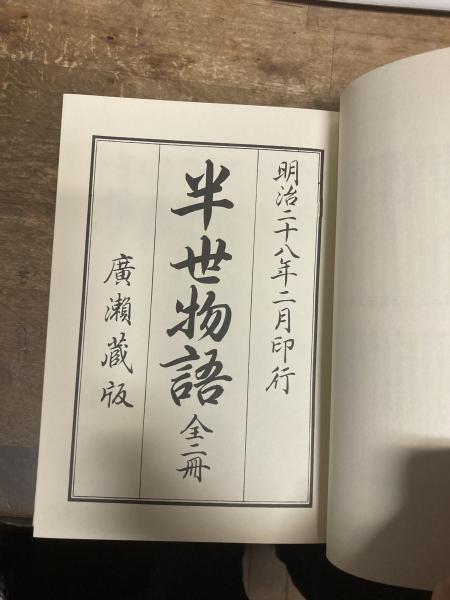 明治二十八年二月印行
半世物語全二冊
廣瀬蔵版